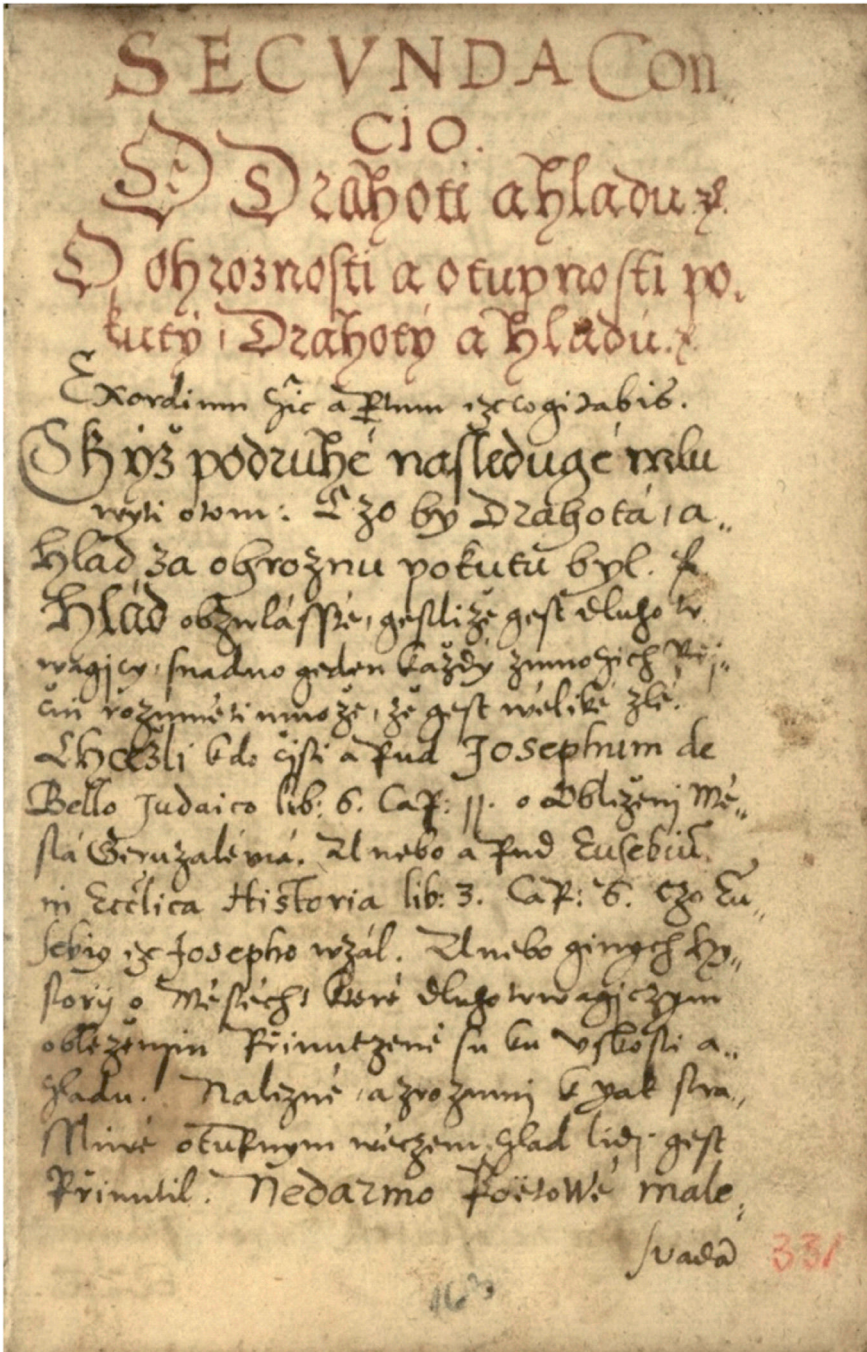 SECVNDA Con„
CIO.
O Drahoti a hladu.
O ohroznosti a otupnosti po„
kuty, Drahoty a hladu.
Exordium hic apertum excogitabis.
Skyž podruhé nasleduge mlu
wyti otom: Czo by Drahotá, a„
Hlad, za ohroznu pokutu byl.
Hlád obzwlásstě, gestliže gest dluho tr
wagicy, snadno geden každý z mnohich Při„
čin rozuměti muože, že gest weliké zlé.
Chceżli kdo čisti apud Josephum de
Bello Judaico lib: 6. Cap: 11. o Obleženi Mě„
stá Geruzaléma. A nebo apud Eusebiū
in Ecclica Historia lib: 3. Cap: 6. czo Eu„
sebig ex Josepho wzál. A nebo ginych hy„
story o Městéch, které dluho trwagiczym
obležěnym Přinuczené su ku uzkosti a„
hladu. Nalezné, a zrozumi k yak stra„
ssliwé otupnym wěczem hlad lidi gest
Přinutil. Nedarmo Poëtowé male„
suadā
331
163